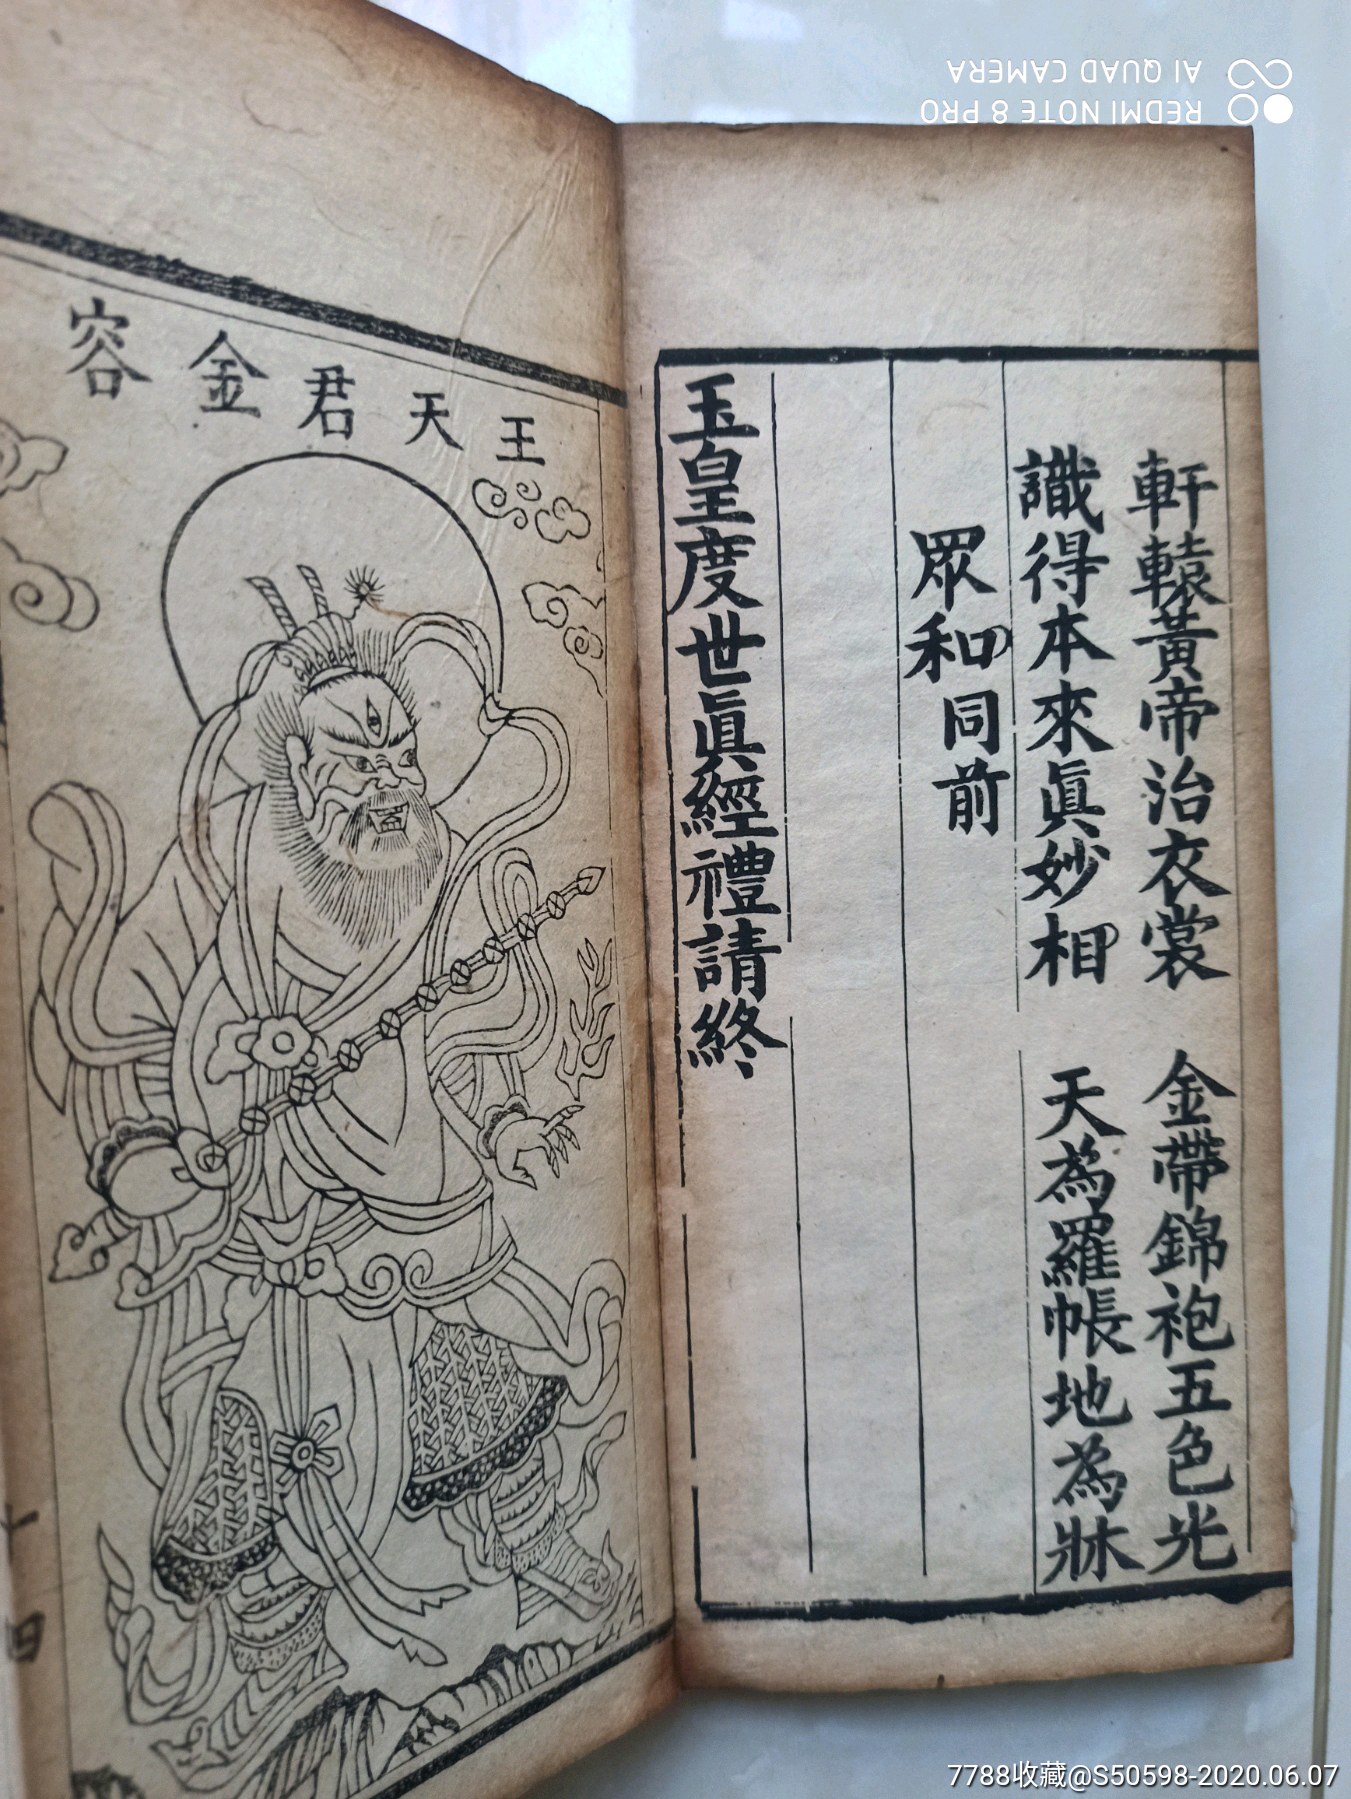 軒轅黃帝治衣裳 金帶錦袍五色光
識得本來眞妙相 天為羅帳地為牀
眾和同前
玉皇度世眞經禮請終
王天君金容
十四
REDMI NOTE 8 PRO
AI QUAD CAMERA
7788收藏@S50598-2020.06.07